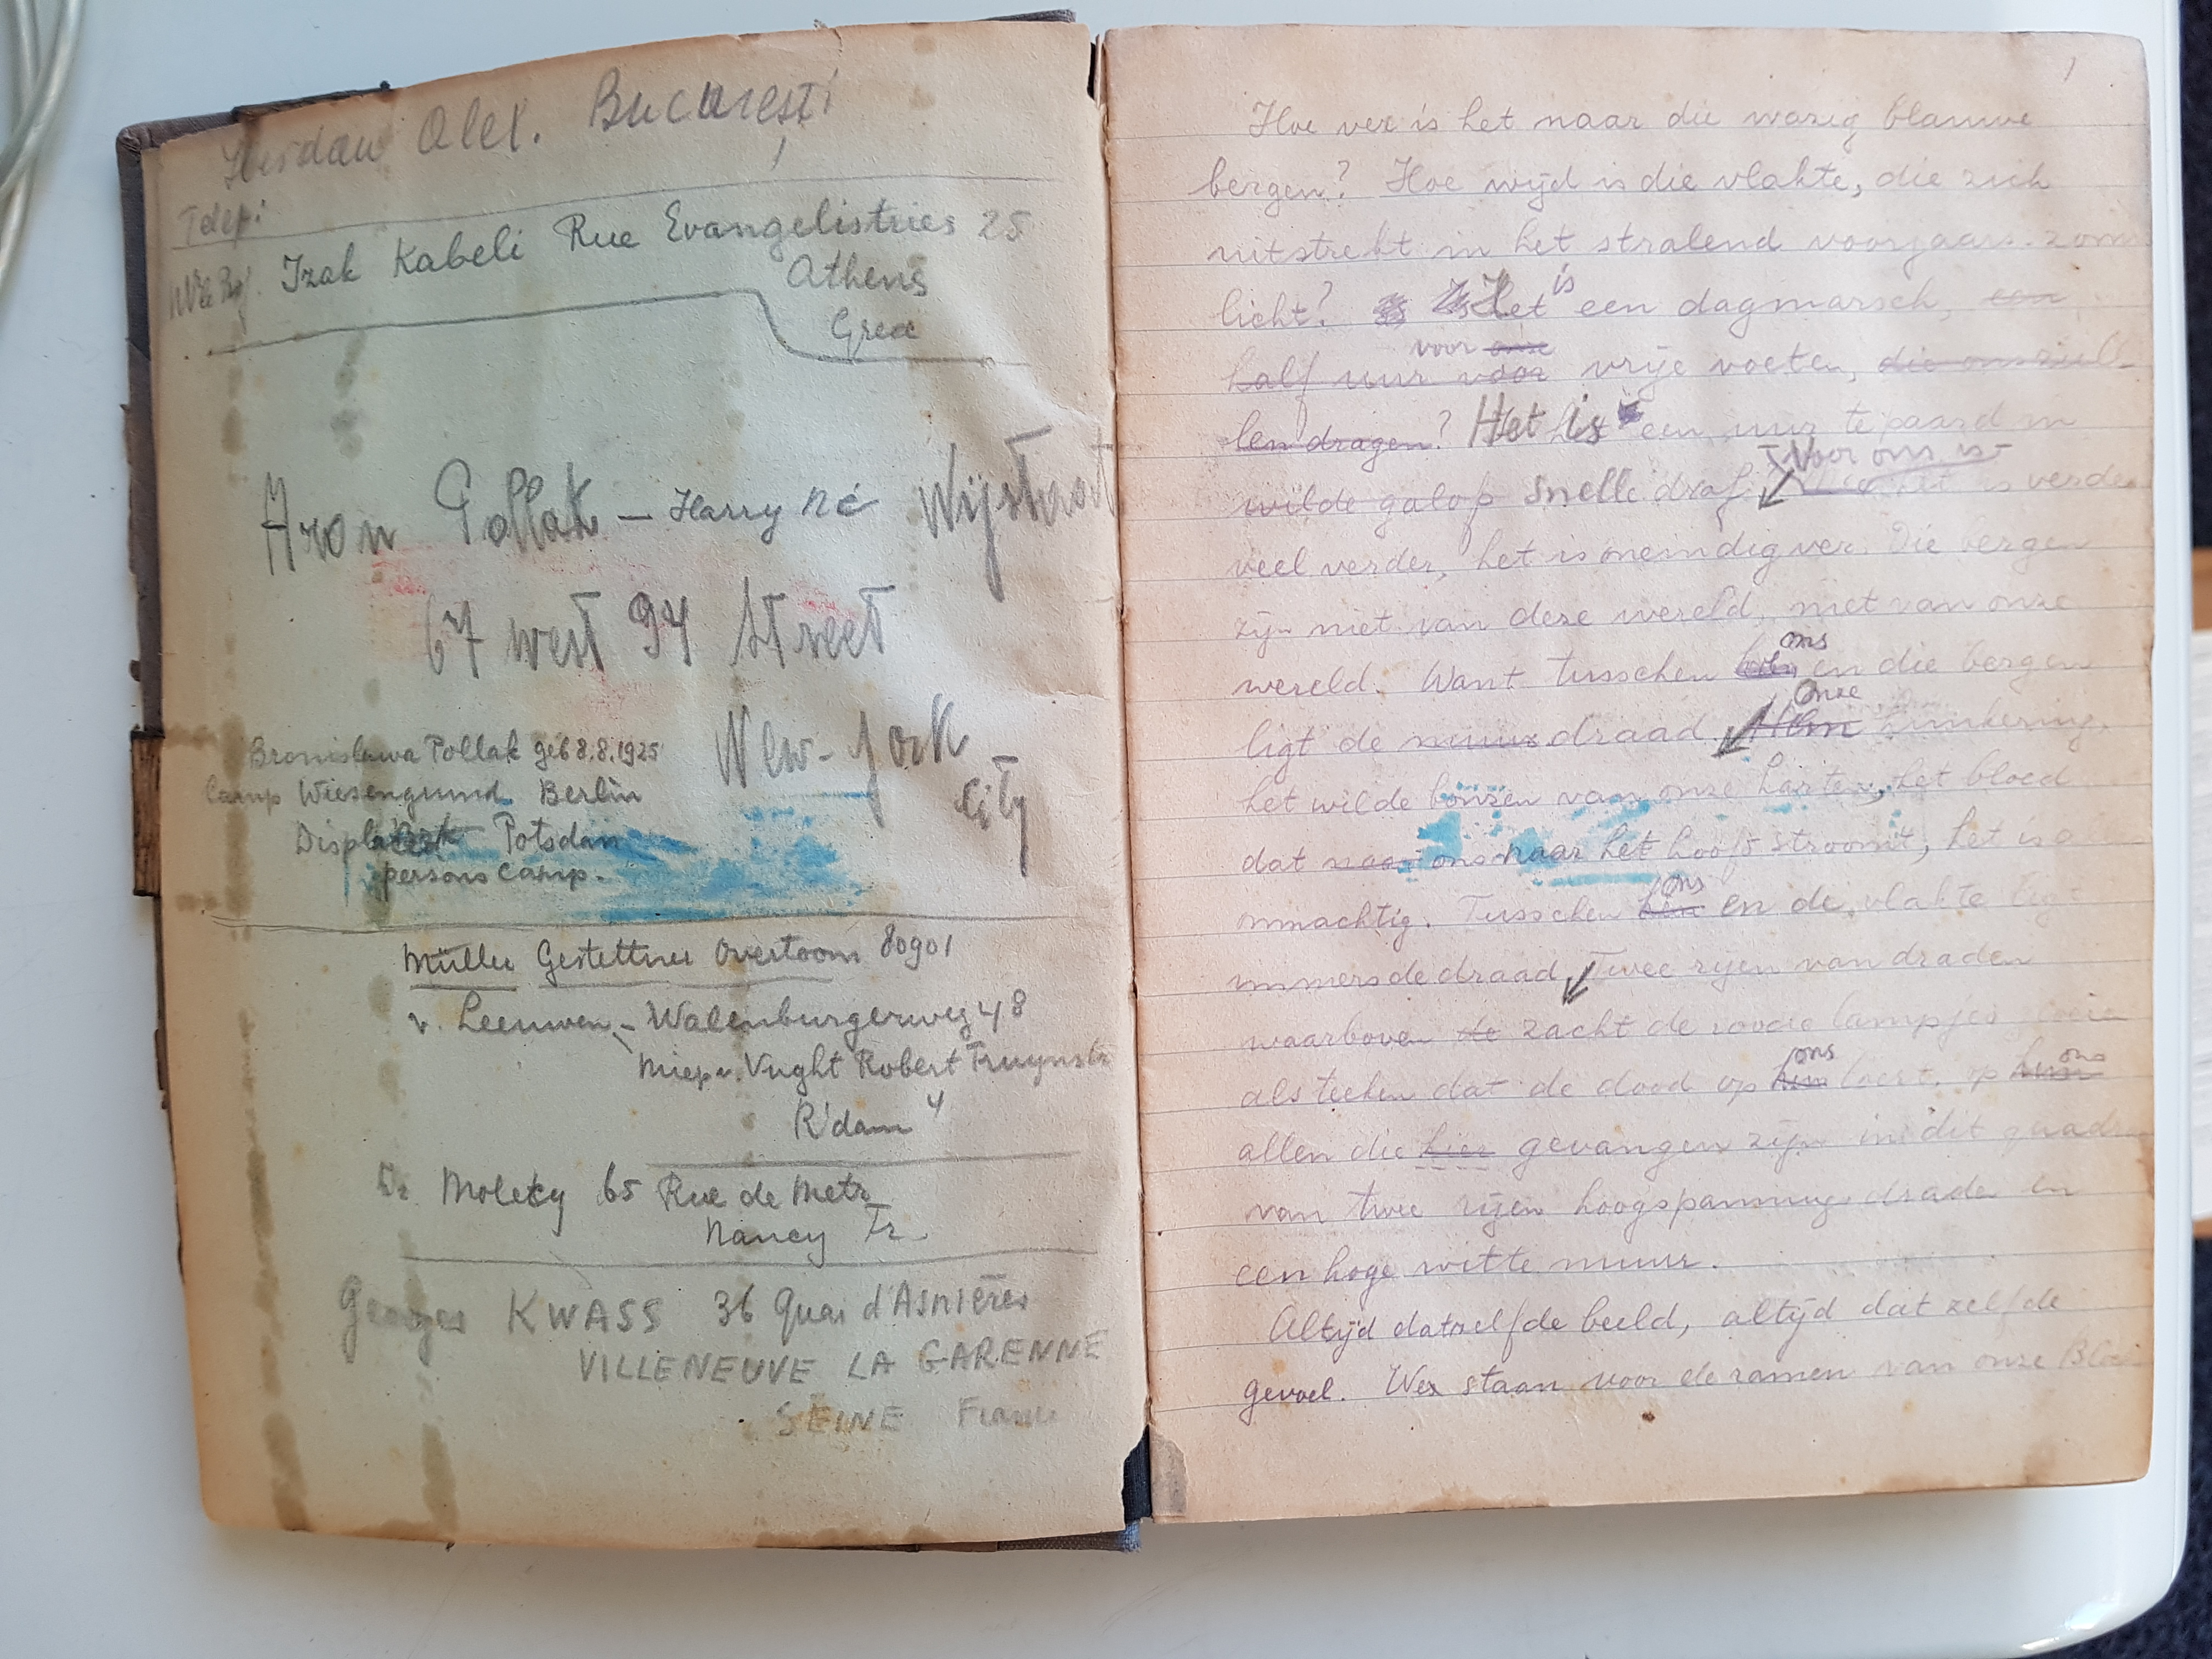 Alex. Bucureşti
Telef:
Izak Kabeli Rue Evangelistries 25
Athens
Grece
Aron Pollak — Harry né Wijstraat
67 west 94 Street
New-york
City
Bronislawa Pollak geb 8.8.1925
Camp Wiesengrund Berlin
Potsdam
persons Camp.
Müller Gestettner Overtoom 80901
v. Leeuwen - Walenburgerweg 48
Vught Robert Fruynstr
R'dam 4
Dr Molety 65 Rue de Metz
Nancy Fr.
Georges KWASS 36 Quai d'ASNIÈRES
VILLENEUVE LA GARENNE
SEINE France
1
Hoe ver is het naar die wazig blauwe
bergen? Hoe wijd is die vlakte, die zich
uitstrekt in het stralend voorjaars. zonne
is
licht? Het een dagmarsch, een
voor onze
half uur voor vrije voeten, die ons zull-
len dragen? Het is een uur te paard in
Voor ons is
wilde galop snelle draf. het is verder
veel verder, het is oneindig ver. Die bergen
zijn niet van deze wereld, niet van onze
ons
wereld. Want tusschen en die bergen
Onze
ligt de muur draad. Hun hunkering,
het wilde bonzen van onze harten, het bloed
dat naar ons naar het hoofd stroomt, het is
ons
onmachtig. Tusschen hen en de vlakte ligt
immers de draad. Twee rijen van draden
waarboven de zacht de roode lampjes gloeien
ons ons
als teeken dat de dood op hen loert, op hun
allen die hier gevangen zijn in dit quadra
van twee rijen hoogspannings draden en
een hoge witte muur.
Altijd datzelfde beeld, altijd dat zelfde
gevoel. Wex staan voor de ramen van onze Block